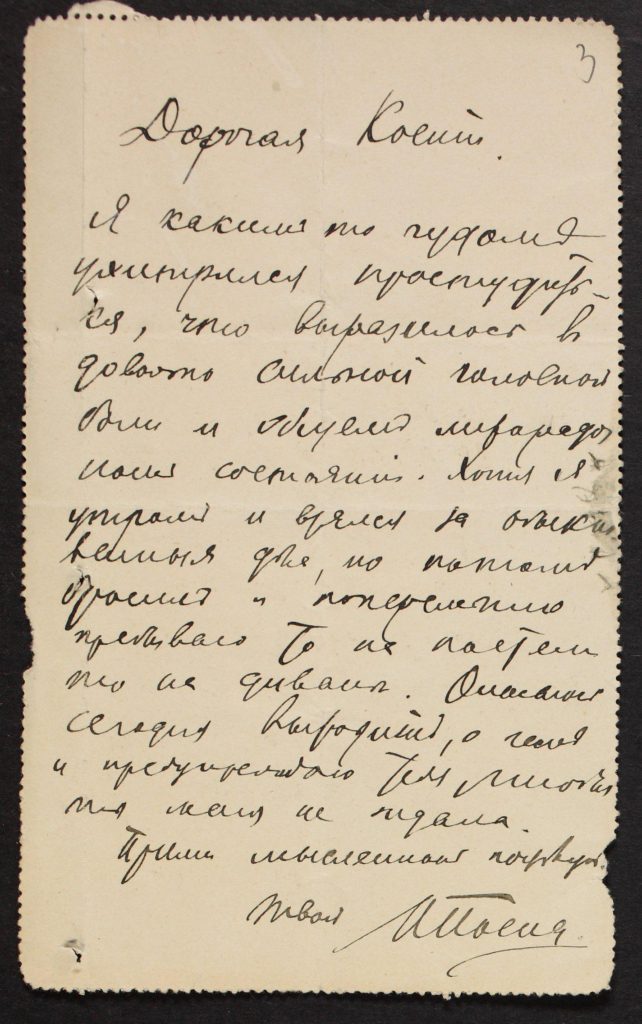 3
Дорогая
Я какимъ то чудомъ
ухитрился простудить-
ся, что выразилось въ
довольно сильной головной
боли и общемъ лихорадоч
номъ состоянiи. Хотя я
утромъ и взялся за обыкно
венныя дѣла, но потомъ
бросилъ и поперемѣнно
пребываю то на постели
то на диванѣ. Опасаюсь
сегодня выходить, о чемъ
и предупреждаю тебя, чтобы
ты меня не ждала.
Прими мысленный поцѣлуй.
твой